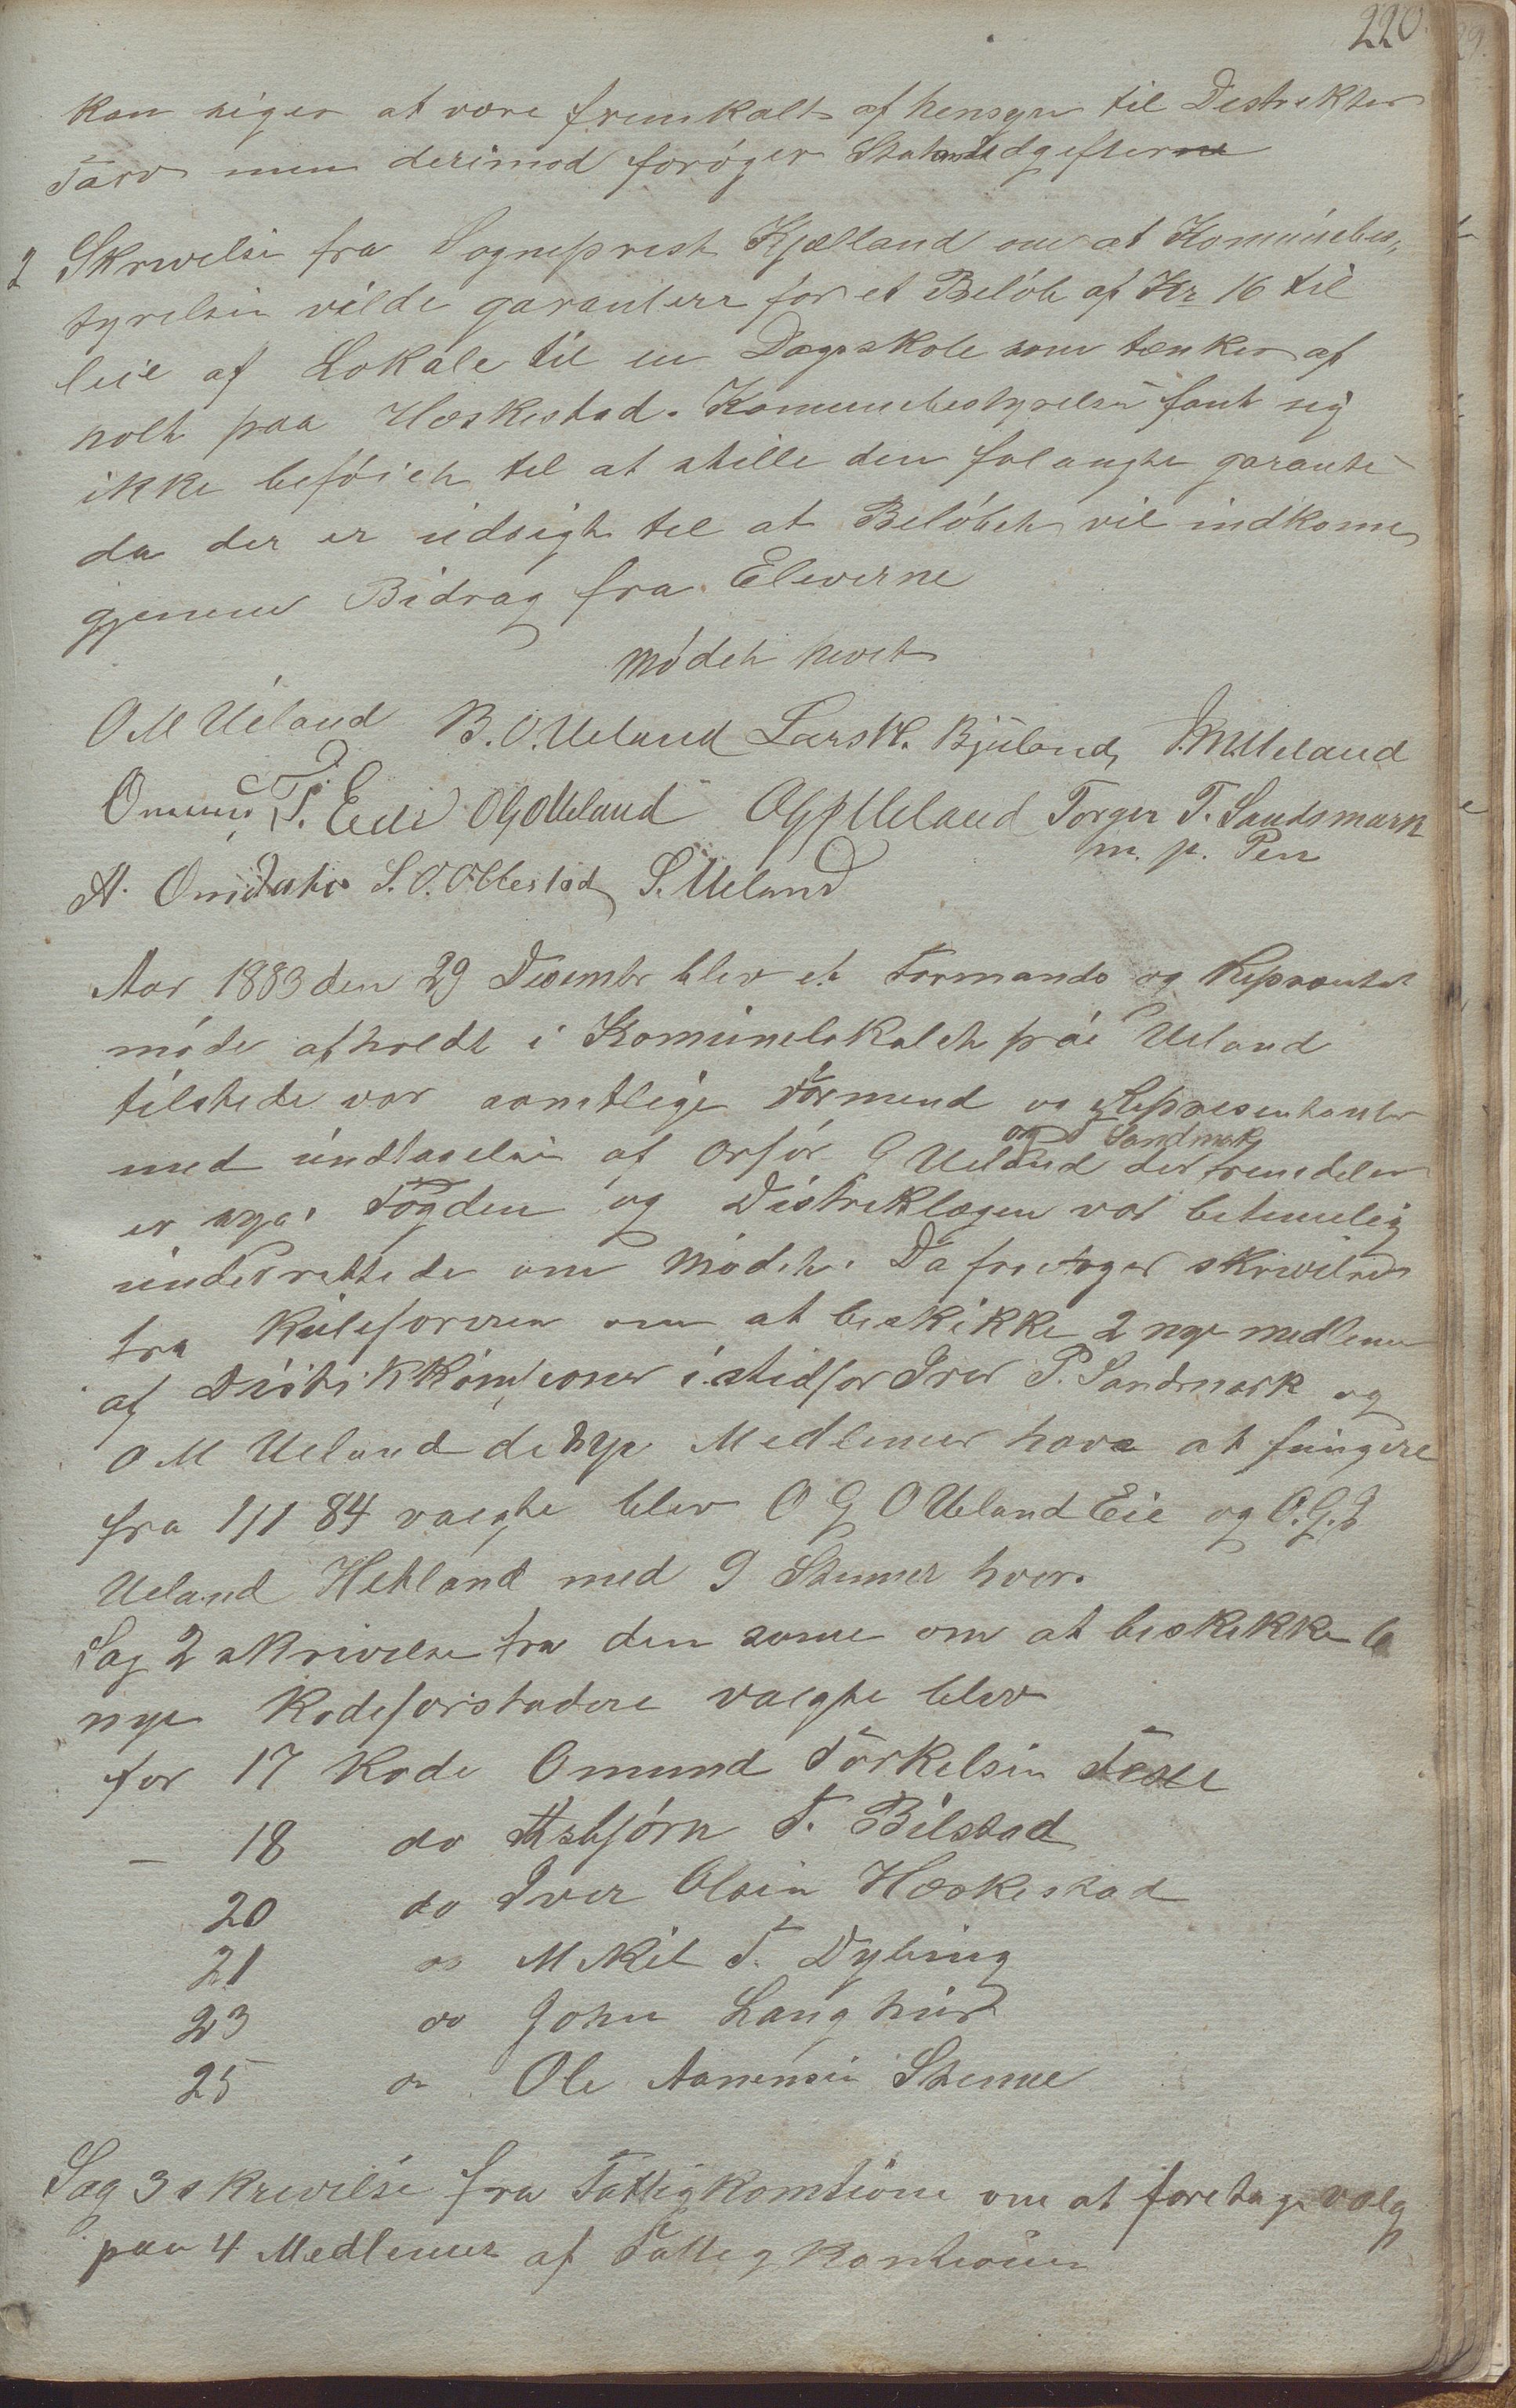 220
kan siges at være fremkalt af hensyn til Destrekter
Tarv men derimod forøger Stats Udgifterne
2 Skrivelse fra Sogneprest Kjælland om at Komunebes„
tyrelsen vilde garantere for et Beløb af Kr 16 til
leie af Lokale til en Dagskole som tænkes af
holt paa Heskestad. Komunebestyrelsen fant sig
ikke beføiet til at stille den forlangte garanti
da der er udsigt til at Beløbet vil indkome
gjenem Bidrag fra Eleverne
Mødet hevet
O M Ueland B. O. Ueland Lars H. Bjuland, J. M. Ueland
Omund T. Eide O G O Ueland O G P Ueland Torger T. Sandsmark
m. p. Pen
A. Omdal S. O. Ollestad S. Ueland
Aar 1883 den 29 Desember blev et Formands og Represental
møde afholdt i Komunelokalet paa Ueland
tilstede var samtlige Formend og Representanter
og T Sandmark
med undtagelse af Orfør G Ueland der fremdeles
er syg. Fogden og Distriktlægen var betimelig
underrettede om Mødet. Da foretoges skrivelse
fra Rulleføreren om at beskikke 2 nye medlemer
af Distrikkomsioner i sted for Iver P. Sandmark og
O M Ueland de nye Medlemer have at fungere
fra 1/1 84 valgte blev O G O Ueland Eie og O. G. P
Ueland Hetland med 9 Stemer hver.
Sag 2 skrivelse fra den same om at beskikke 6
nye Rodeforstadere valgte blev
for 17 Rode Omund Torkelsen Tesse
– 18 do Asbjørn T. Bilstad
20 do Iver Olsen Heskestad
21 do Mikel T. Dybing
23 do John Langhus
25 do Ole Aanensen Steme
Sag 3 skrivelse fra Fattigkomsione om at foretage valg
paa 4 Medlemer af Fattigkomsionen